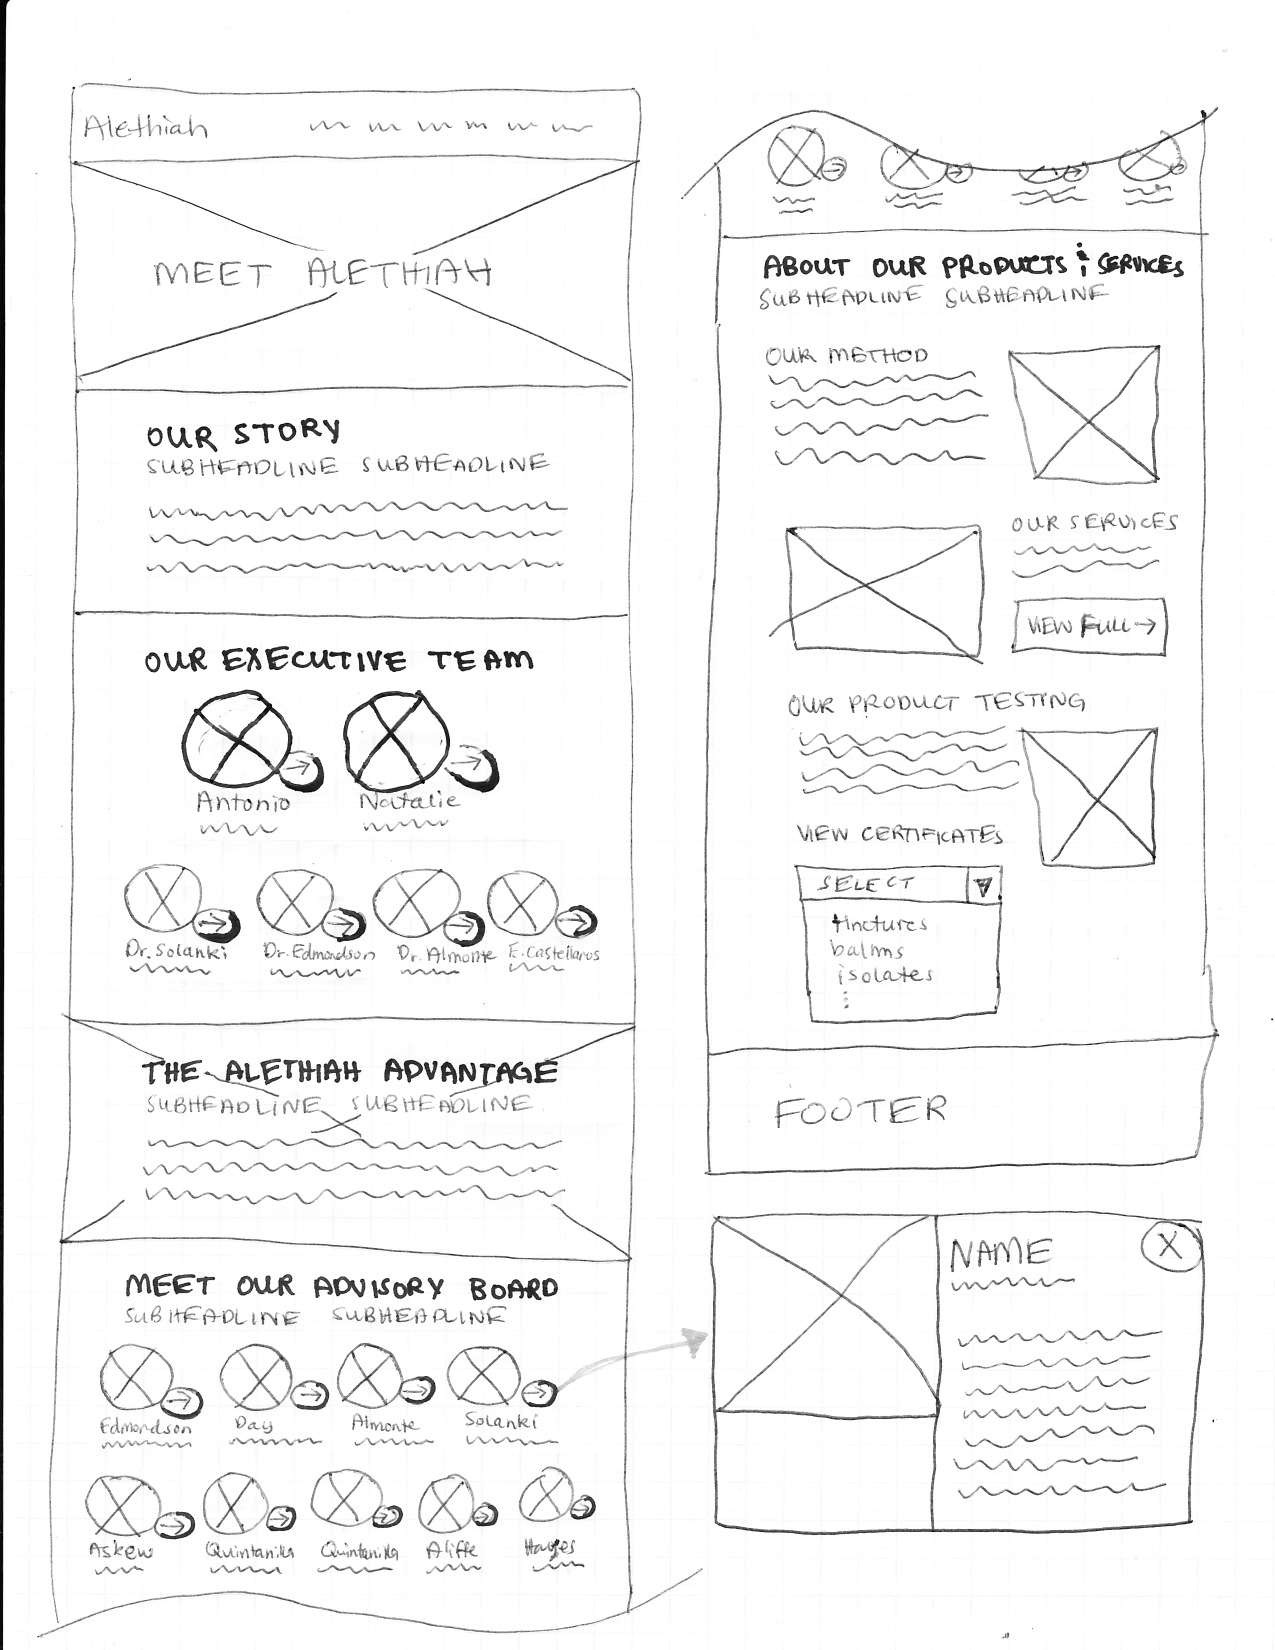 Alethiah
MEET ALETHIAH
OUR STORY
SUBHEADLINE SUBHEADLINE
OUR EXECUTIVE TEAM
Antonio Natalie
Dr. Solanki Dr. Edmondson Dr. Almonte E. Castellanos
THE ALETHIAH ADVANTAGE
SUBHEADLINE SUBHEADLINE
MEET OUR ADVISORY BOARD
SUBHEADLINE SUBHEADLINE
Edmondson Day Almonte Solanki
Askew Quintanilla Quintanilla Aliffe Hayes
ABOUT OUR PRODUCTS & SERVICES
SUBHEADLINE SUBHEADLINE
OUR METHOD
OUR SERVICES
VIEW FULL →
OUR PRODUCT TESTING
VIEW CERTIFICATES
SELECT
tinctures
balms
isolates
FOOTER
NAME X